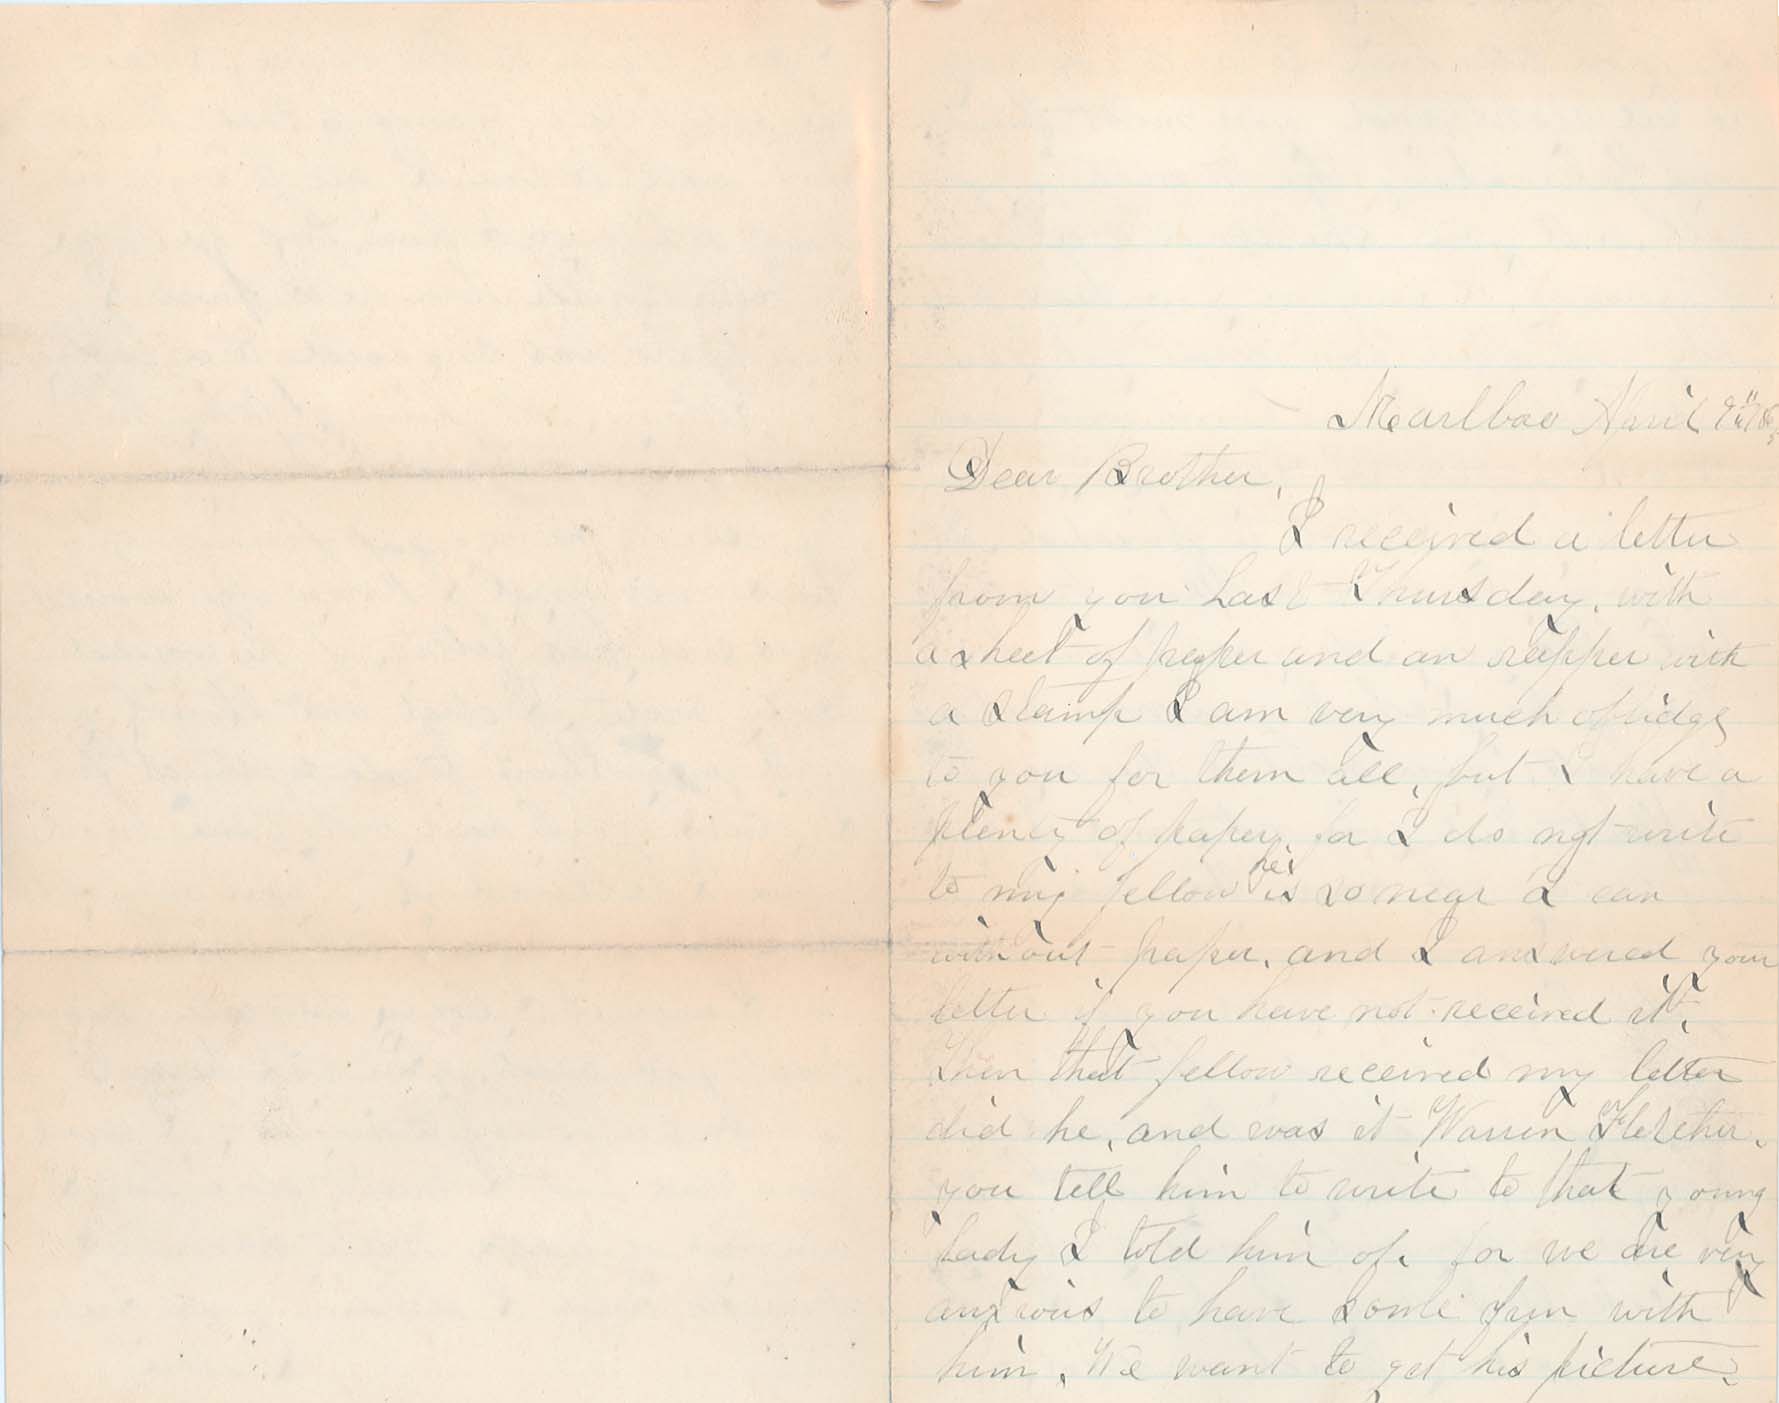 Marlboro April
Dear Brother,
I received a letter
from you Last Thursday, with
a sheet of paper and an rapper with
a stamp I am very much oblidge
to you for them all, but I have a
plenty of paper, for I do not write
to my fellow he is so near I can
without paper, and I answered your
letter if you have not received it,
then that fellow received my letter
did he, and was it Warren Fletcher,
you tell him to write to that young
lady I told him of, for we are very
anxious to have some fun with
him, We want to get his picture,